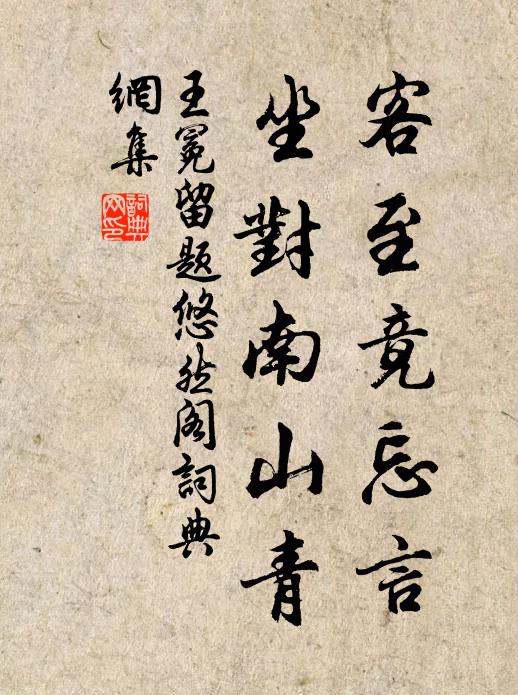 客至竟忘言
坐對南山青
王冕留題悠然阁詞典
網集
詞典
网印